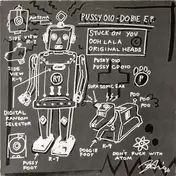 PUSSY OLO - DOBIE E.P.
ANTENNA
STUCK ON YOU
OOH LALA
ORIGINAL HEADS
SIDE VIEW
R-9
PUSSY OLO
PUSSY
SIDE VIEW
R-7
SUPA SONIC EAR
POO
POO
POO
DIGITAL
RANDOM
SELECTOR
PUSSY
FOOT
R-7
DOGGIE
POOT
K-9
DON'T FUCK WITH
ATOM